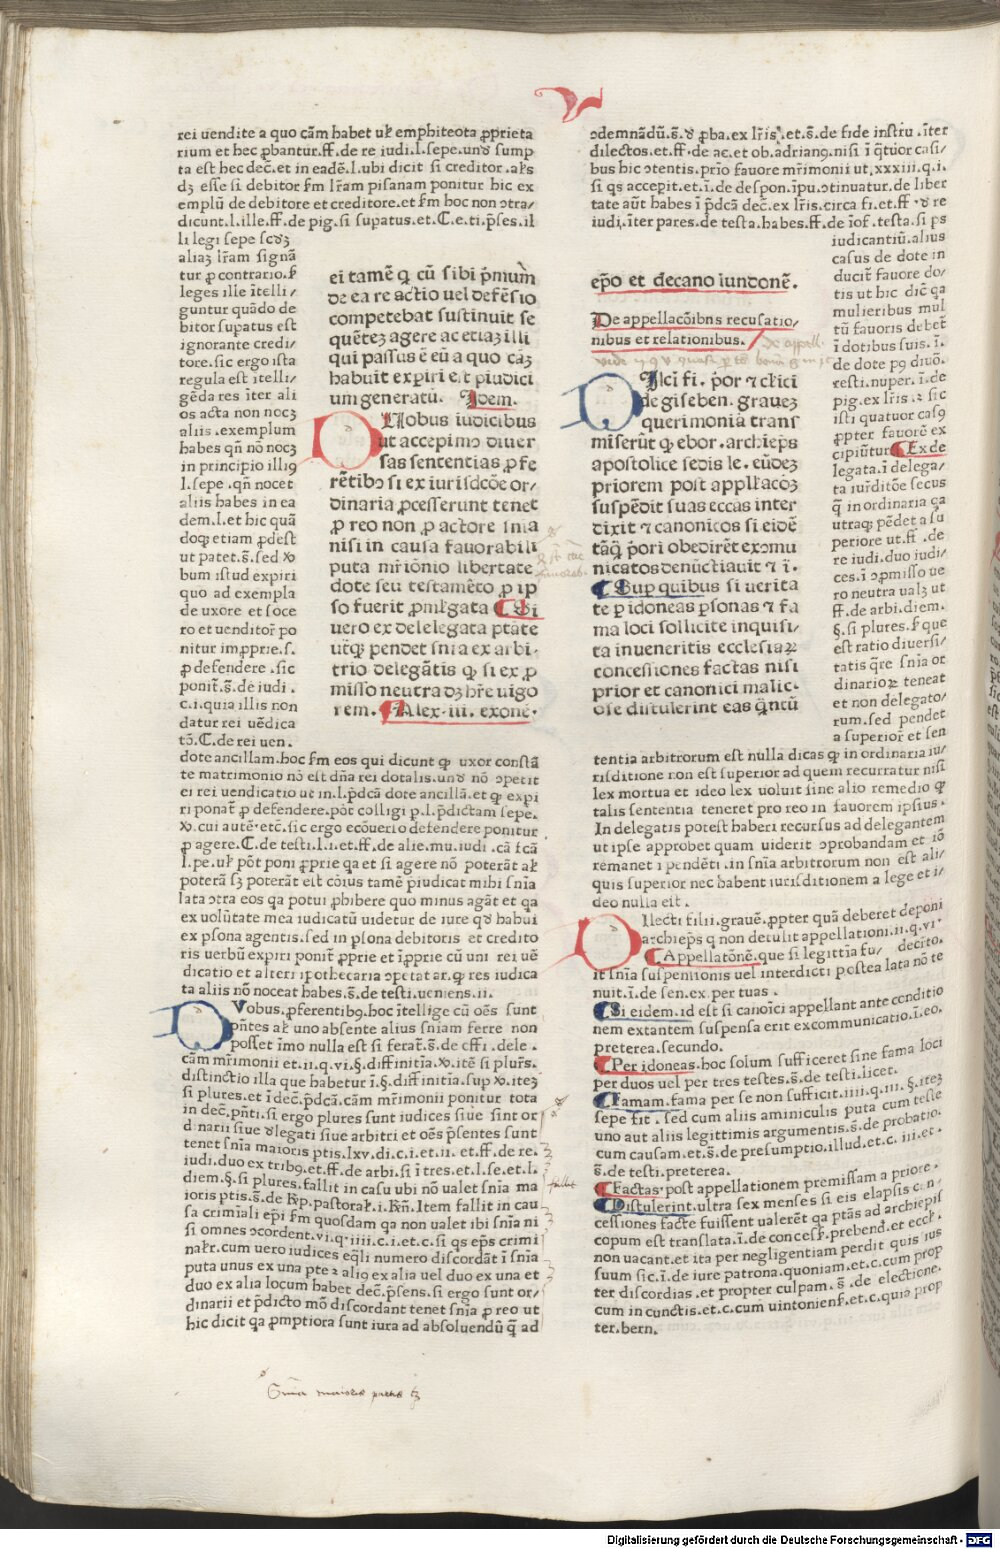 V
rei uendite a quo cãm habet ut emphiteota ꝓprieta
rium et hec ꝓbantur.ff.de re iudi.l.sepe.unð sump
ta est hec dec̃.et in eadẽ.l.ubi dicit si creditor.
dʒ esse si debitor pisanam ponitur hic ex
emplũ de debitore et creditore.et hoc non ɔtra/
dicunt.l.ille.ff.de pig.si supatus.et.C.e.ti.p̃ses.il
li legi sepe
aliaʒ lr̃am signã
tur ꝓ contrario.
leges ille ĩtelli/
guntur quãdo de
bitor supatus est
ignorante credi/
tore.sic ergo ista
regula est ĩtelli/
gẽda res iter ali
os acta non nocʒ
aliis.exemplum
habes qñ nõ nocʒ
in principio illi9
l.sepe.qñ nocet
aliis habes in ea
dem.l.et hic quã
doqʒ etiam ꝓdest
ut patet.s̃.sed
bum istud expiri
quo ad exempla
de uxore et soce
ro et uenditor̃ po
nitur imꝓprie.s.
ꝓ defendere.sic
ponit̃.s̃.de iudi.
c.i.quia illis non
datur rei uẽdica
tõ.C.de rei uen.
ei tamẽ ꝙ cũ sibi p̃mium̃
de ea re actio uel defẽsio
competebat sustinuit se
quẽteʒ agere ac etiaʒ illi
qui passus ẽ eũ a quo cãʒ
habuit expiri est piudici
um generatu. Idem.
DUobus iudicibus
ut accepimꝰ diuer
sas sentencias ꝓfe
rẽtibꝰ si ex iurisdcõe or/
dinaria ꝓcesserunt tenet
ꝓ reo non ꝓ actore snia
nisi in causa fauorabili
puta mr̃imonio libertate
dote seu testamẽto ꝓ ip
so fuerit ꝓmlgata ¶ Si
uero ex delelegata ptãte
utq̃ʒ pendet snia ex arbi-
trio delegãtis ꝙ si ex ꝓ
misso neutra dʒ hr̃e uigo
rem. ¶ Alex.iii.exoñe.
dote ancillam.hoc eos qui dicunt ꝙ uxor constã
te matrimonio nõ est dñа rei dotalis.unð nõ ɔpetit
ei rei uendicatio ut in.l.p̃dcã dote ancillã.et ꝙ expi
riri ponat̃ ꝓ defendere.põt colligi p.l.p̃dictam sepe.
cui autẽ.etc̃.sic ergo ecõuerio defendere ponitur
ꝓ agere.C.de testi.l.i.et.ff.de alie.mu.iudi.cã fcã
l.pe. põt poni ꝓprie qa et si agere nõ poterãt
poterã sʒ poterãt est cõius tamẽ p̃iudicat mihi snĩa
lata ɔtra eos qa potui ꝓhibere quo minus agãt et qa
ex uolũtate mea iudicatũ uidetur de iure qð habui
ex ꝑsona agentis.sed in ꝑsona debitoris et credito
ris uerbũ expiri ponit̃ ꝓprie et ĩꝓprie cũ uni rei uẽ
dicatio et alteri ipothecaria ɔpetat ar.ꝙ res iudica
ta aliis nõ noceat habes.s̃.de testi.ueniens.ii.
DVobus.ꝓferentib9.hoc ĩtellige cũ oẽs sunt
pñtes uno absente alius sniam ferre non
posset ĩmo nulla est si ferat̃.s̃.de effi.dele.
cãm mr̃imonii et.ii.q.vi.§.diffinitĩa. itẽ si plur̃s.
distinctio illa que habetur ĩ.§.diffinitĩa.sup iteʒ
si plures.et ĩ dec̃.p̃dcã.cãm mr̃imonii ponitur tota
in dec̃.pñti.si ergo plures sunt iudices siue sint or
dinarii siue ðlegati siue arbitri et oẽs p̃sentes sunt
tenet snĩa maioris ptis.lxv.di.c.i.et.ii.et.ff.de re.
iudi.duo ex trib9.et.ff.de arbi.si ĩ tres.et.l.se.et.l.
diem.§.si plures.fallit in casu ubi nõ ualet snĩa ma
ioris ptis.s̃.de pastoral.i. Item fallit in cau
sa crimiali ep̃i quosdam qa non ualet ibi snĩa ni
si omnes ɔcordent.vi.q.iiii.c.i.et.c.si qs ep̃s crimi
nalr̃.cum uero iudices eq̃li numero discordãt ĩ snĩa
puta unus ex una pte ⁊ ali9 ex alia uel duo ex una et
duo ex alia locum habet dec̃.p̃sens.si ergo sunt or/
dinarii et p̃dicto mõ discordant tenet snĩa ꝓ reo ut
hic dicit qa ꝓmptiora sunt iura ad absoluendũ q̃ ad
ɔdemnãdũ.s̃.ð ꝓba.ex lr̃is.et.s̃.de fide instru.iter
dilectos.et.ff.de ac.et ob.adrian9.nisi ĩ q̃tuor casi/
bus hic ɔtentis.prĩo fauore mr̃imonii ut.xxxiii.q.i.
si qs accepit.et.ĩ.de despon.ĩpu.ɔtinuatur.de liber
tate aut̃ habes ĩ p̃dcã dec̃.ex lr̃is.circa fi.et.ff.ð re
iudi.iter pares.de testa.habes.ff.de ĩof.testa.si ps
iudicantiũ.alius
casus de dote in
ducit̃ fauore do/
tis ut hic dic̃ qa
mulieribus mul
tũ fauoris debet̃
ĩ dotibus suis.ĩ.
de dote p9 diuõ.
resti.nuper.ĩ.de
pig.ex lr̃is.: sic
isti quatuor cas9
ꝓpter fauorẽ ex
cipiũtur ¶ Ex de
legata.ĩ delega/
ta iurditõe secus
q̃ in ordinaria qa
utraqʒ pẽdet a su
periore ut.ff.de
re iudi.duo iudi/
ces.ĩ ɔpmisso ue
ro neutra ualʒ ut
ff.de arbi.diem.
§.si plures. que
est ratio diuersi/
tatis q̃re snĩa or
dinarioꝝ teneat
et non delegato/
rum.sed pendet
a superior̃ et sen
ep̃o et decano lundonẽ.
De appellacõibns recusatio/
nibus et relationibus.
DIlcĩ fi.p̃or ⁊ clĩci
de giseben.grauez
querimonia trans
miserũt ꝙ ebor.archiep̃s
apostolice sedis le.eũdez
priorem post appllacoʒ
suspẽdit suas eccas inter
dixit ⁊ canonicos si eidẽ
tãq̃ p̃ori obedirẽt exɔmu
nicatos denũctiauit ⁊ ĩ.
¶ Sup quibus si uerita
te p idoneas psonas ⁊ fa
ma loci sollicite inquisi/
ta inueneritis ecclesiaꝝ
concessiones factas nisi
prior et canonici malic-
ose distulerint eas q̃ntũ
tentia arbitrorum est nulla dicas ꝙ in ordinaria iu/
risditione non est superior ad quem recurratur nisi
lex mortua et ideo lex uoluit sine alio remedio ꝙ
talis sententia teneret pro reo in fauorem ipsius.
In delegatis potest haberi recursus ad delegantem
ut ipse approbet quam uiderit ɔprobandam et iõ
remanet ĩ pendẽti.in snĩa arbitrorum non est ali/
quis superior nec habent iurisditionem a lege et i/
deo nulla est.
DIlecti filii.grauẽ.ꝓpter quã deberet deponi
archiep̃s q non detulit appellationi.ii.q.vi.
decito.
¶ Appellatõnẽ.que si legittĩa fu/
it snĩa suspensionis uel interdicti postea lata nõ te
nuit.ĩ.de sen.ex.per tuas.
¶ Si eidem.id est si canoĩci appellant ante conditio
nem extantem suspensa erit excommunicatio.ĩ.eo.
preterea.secundo.
¶ Per idoneas.hoc solum sufficeret sine fama loci
per duos uel per tres testes.s̃.de testi.licet.
¶ Famam.fama per se non sufficit.iiii.q.iii.§.iteʒ
sepe fit.sed cum aliis aminiculis puta cum teste
uno aut aliis legittimis argumentis.s̃.de probatio.
cum causam.et.s̃.de presumptio.illud.et.c.iii.et.
s̃.de testi.preterea.
¶ Factas.post appellationem premissam a priore.
¶ Distulerint.ultra sex menses si eis elapsis con/
cessiones facte fuissent ualerẽt qa ptãs ad archiepis
copum est translata.ĩ.de concess.prebend.et eccl.
non uacant.et ita per negligentiam perdit quis ius
suum sic.ĩ.de iure patrona.quoniam.et.c.cum prop
ter discordias.et propter culpam.s̃.de electione.
cum in cunctis.et.c.cum uintonienf.et.c.quia prop
ter.bern.
fallit
Snia maioris partis
Digitalisierung gefördert durch die Deutsche Forschungsgemeinschaft - DFG